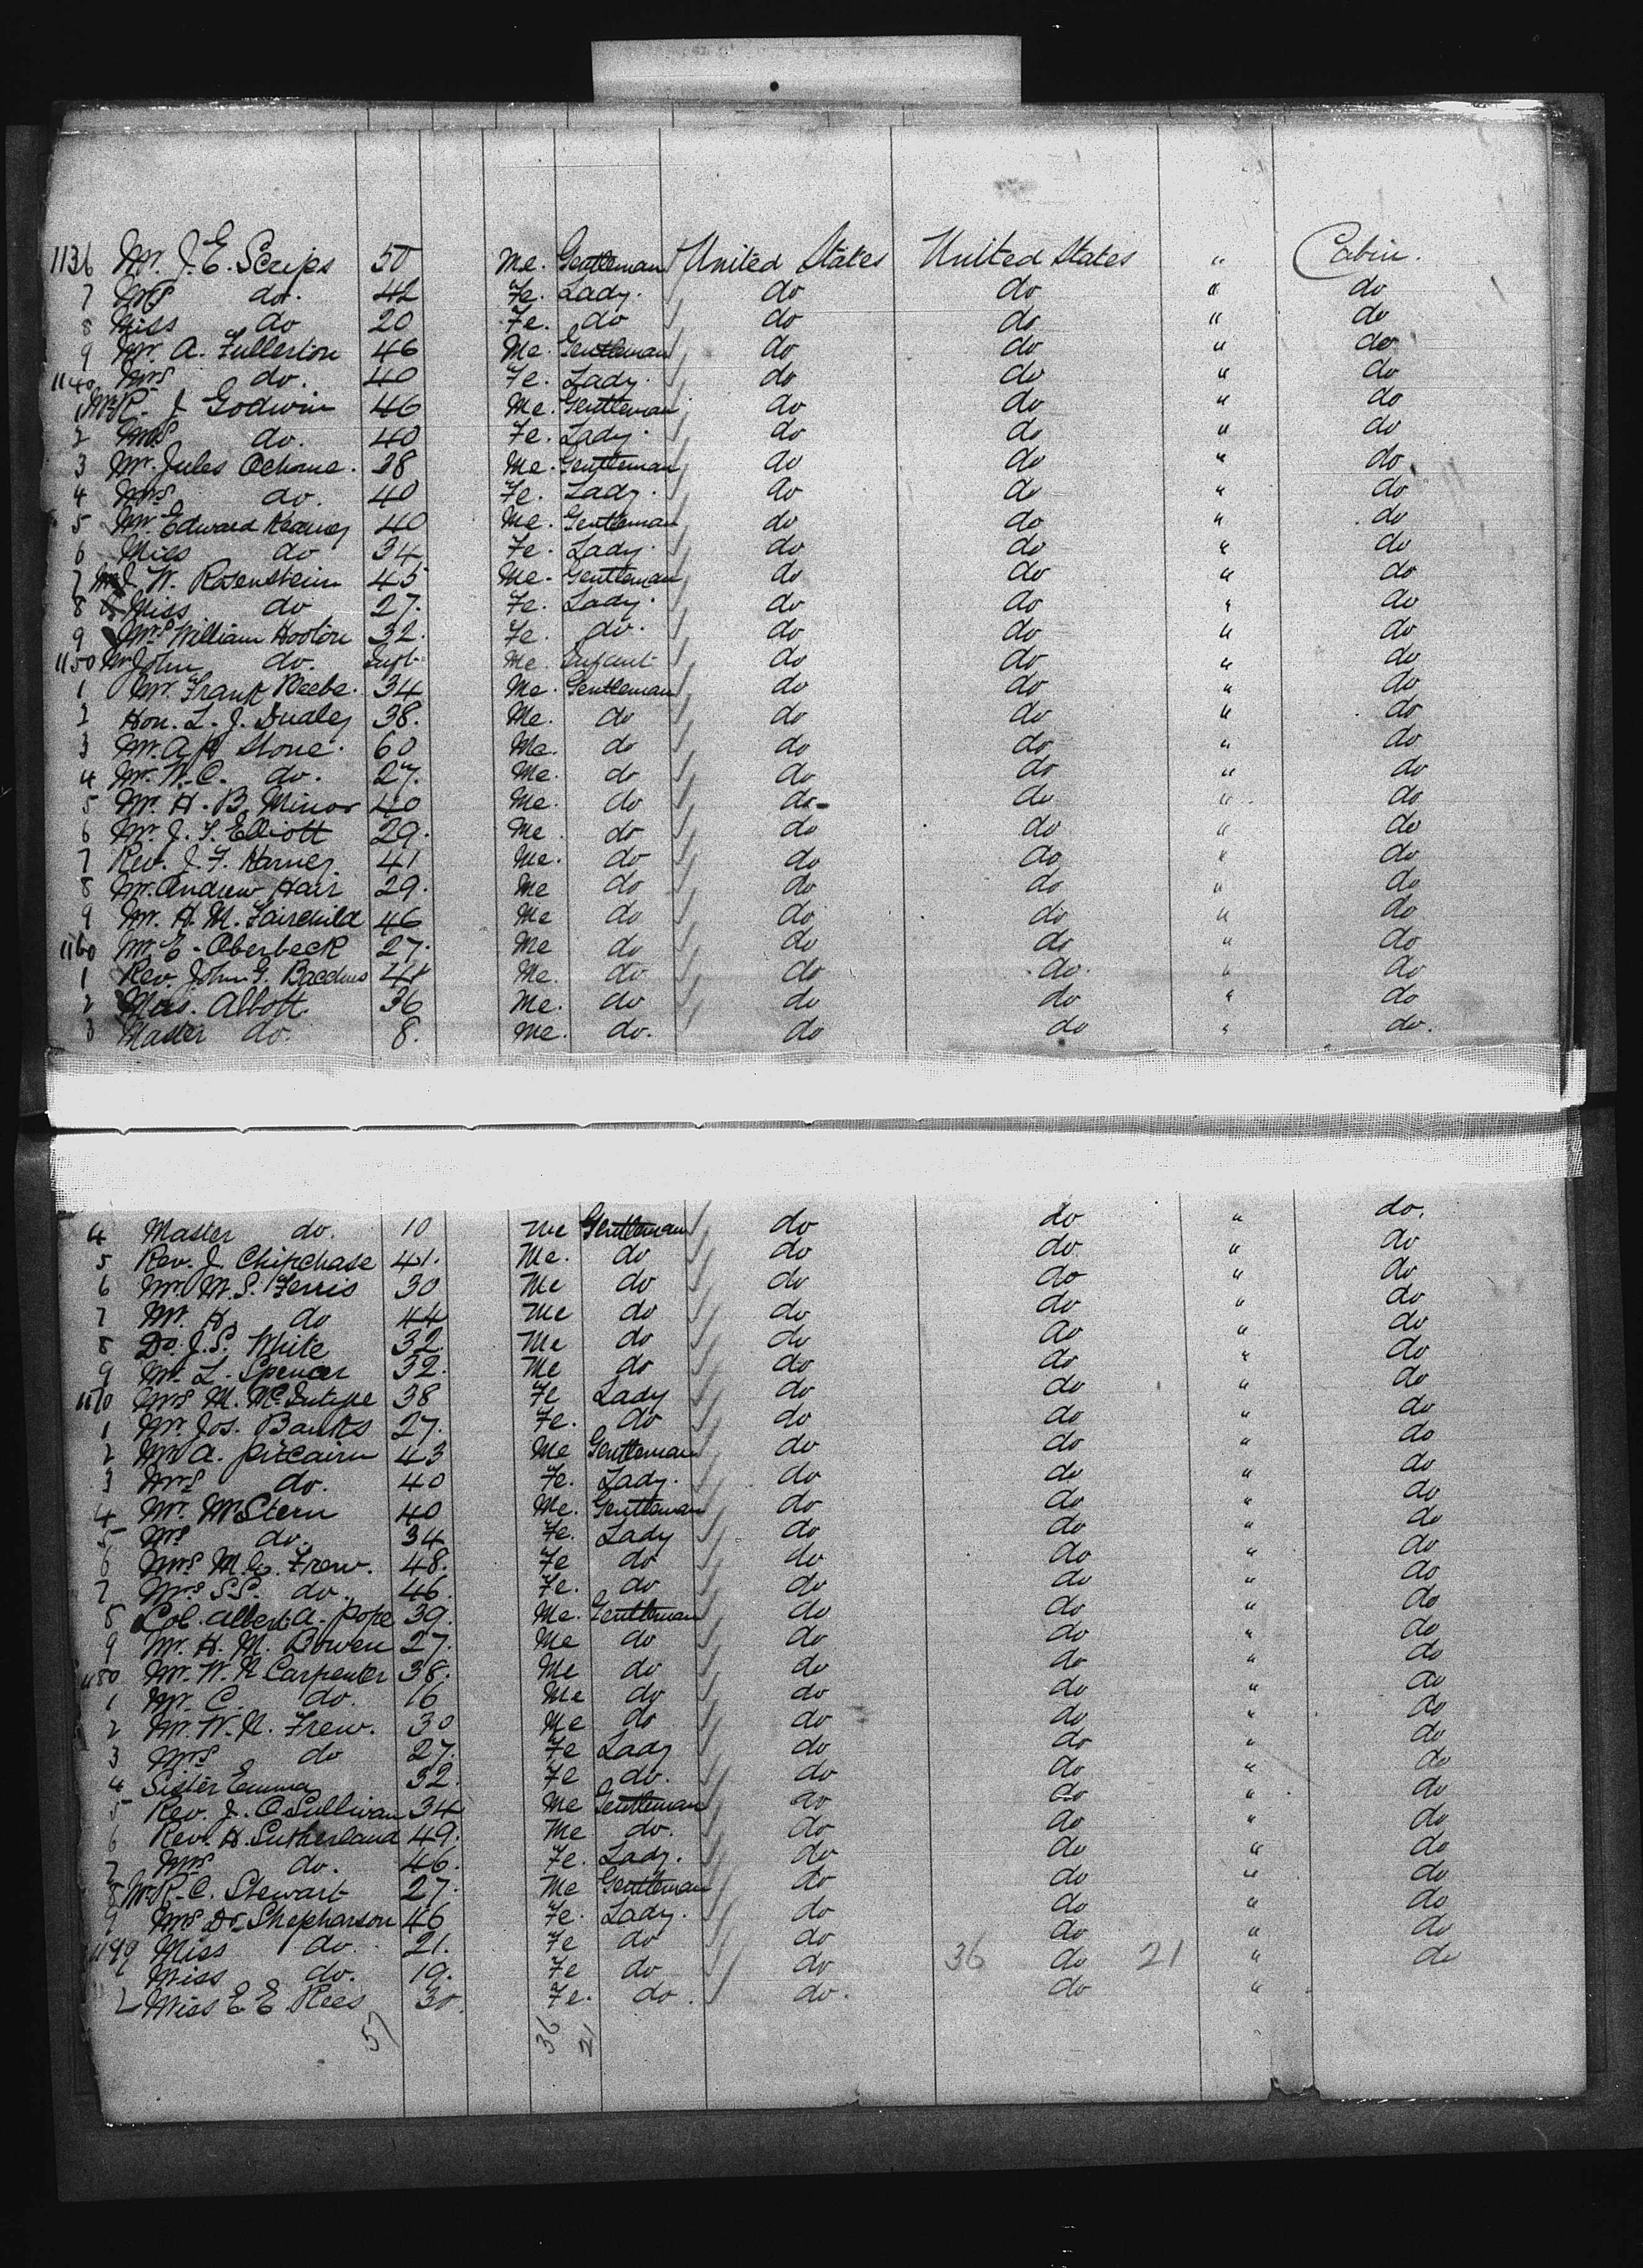 1136 Mr. J. E. Scrips 50 Me. Gentleman United States United States " Cabin.
7 Mrs do. 42 Fe. Lady. do do " do
8 Miss do 20 Fe. do do do " do
9 Mr. A. Fullerton 46 Me. Gentleman do do " do
1140 Mrs do. 40 Fe. Lady. do do " do
1 Mr R. J Godwin 46 Me. Gentleman do do " do
2 Mrs do. 40 Fe. Lady. do do " do
3 Mr. Jules 38 Me. Gentleman do do " do
4 Mrs do. 40 Fe. Lady. do do " do
5 Mr. Edward 40 Me. Gentleman do do " do
6 Miss do 34 Fe. Lady. do do " do
7 W. Rosenstein 45 Me. Gentleman do do " do
8 Miss do 27. Fe. Lady. do do " do
9 Mrs William Hooton 32. Fe. do. do do " do
1150 Mr John do. Inft. Me. Infant do do " do
1 Mr. Frank Beebe. 34 Me. Gentleman do do " do
2 Hon. L. J. Dudley 38. Me. do do do " do
3 Mr. A. Stone. 60 Me. do do do " do
4 Mr. W. C. do. 27. Me. do do do " do
5 Mr. H. B. Minor 40 Me. do do do " do
6 Mr. J. S. Elliott 29. Me. do do do " do
7 Rev. J. F. Harney 41 Me. do do do " do
8 Mr. Andrew Hair 29. Me do do do " do
9 Mr. H. M. Fairchild 46 Me do do do " do
1160 Mr. E. Oberbeck 27. Me do do do " do
1 Rev. John G. Bacchus 41 Me. do do do. " do
2 Abbott. 36 Me. do do do " do
3 Master do. 8. Me. do. do do " do.
4 Master do. 10 Me Gentleman do do " do.
5 Rev. J. Chipchase 41. Me. do do do " do
6 Mr. M. S. Ferris 30 Me do do do " do
7 Mr. H. do 44 Me do do do " do
8 Dr. J. S. White 32. Me do do do " do
9 Mr. L. Spencer 32. Me do do do " do
1170 Mrs M. McIntype 38 Fe Lady do do " do
1 Mr. Jos. Banks 27. Fe. do do do " do
2 Mr A. Pitcairn 43 Me Gentleman do do " do
3 Mrs do. 40 Fe. Lady. do do " do
4 Mr. M Stern 40 Me. Gentleman do do " do
5 Mrs do. 34 Fe. Lady do do " do
6 Mrs M. C. Frew. 48. Fe do do do " do
7 Mrs S. S. do. 46. Fe. do do do " do
8 Col. Albert A. Pope 39. Me. Gentleman do do " do
9 Mr. H. M. Bowen 27. Me do do do " do
1180 Mr. W. N Carpenter 38. Me do do do " do
1 Mr. C. do. 16 Me do do do " do
2 Mr. W. N. Frew. 30 Me do do do " do
3 Mrs do 27. Fe Lady do do " do
4 Sister Emma 32. Fe do. do do " do
5 Rev. J. O'Sullivan 34 Me Gentleman do do " do
6 Rev. H. Sutherland 49. Me do. do do " do
7 Mrs do. 46. Fe. Lady. do do " do
8 Mr R. C. Stewart 27. Me Gentleman do do " do
9 Mrs Dr. Shepharson 46 Fe. Lady. do do " do
Miss do. 21. Fe do do do " do
1 Miss do. 19. Fe do do 36 do 21 " do
2 Miss E E. Rees 30. Fe. do. do. do "
57 36 21